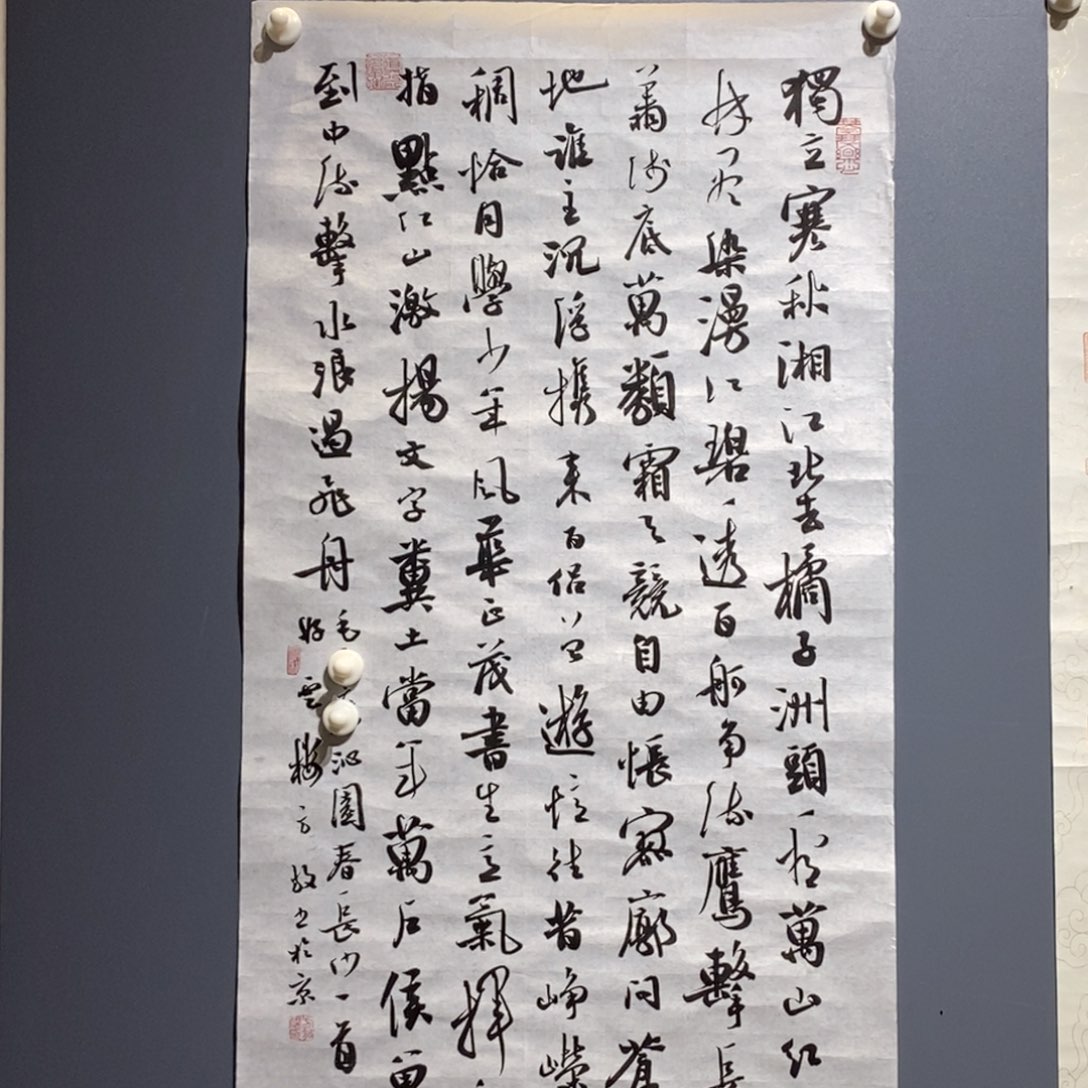 獨立寒秋湘江北去橘子洲頭看萬山红
林尽染漫江碧透百舸争流鷹擊長
翔淺底萬類霜天競自由悵寥廓問蒼
地誰主沉浮携来百侣曾遊憶往昔崢嶸
稠恰同學少年風華正茂書生意氣揮
指點江山激揚文字糞土當年萬户侯曾
到中流擊水浪遏飛舟
毛 沁園春長沙一首
雲樓方放书於京